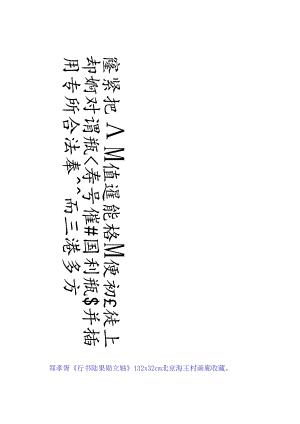 窿紧把 Λ M值暹能格M便初£徒上
却婀对谓瓶<寿号催#国利瓶$并插
用专所合法奉^^而三港多方
郑孝胥《行书陆果勋立轴》132x32cm北京海王村画廊收藏。